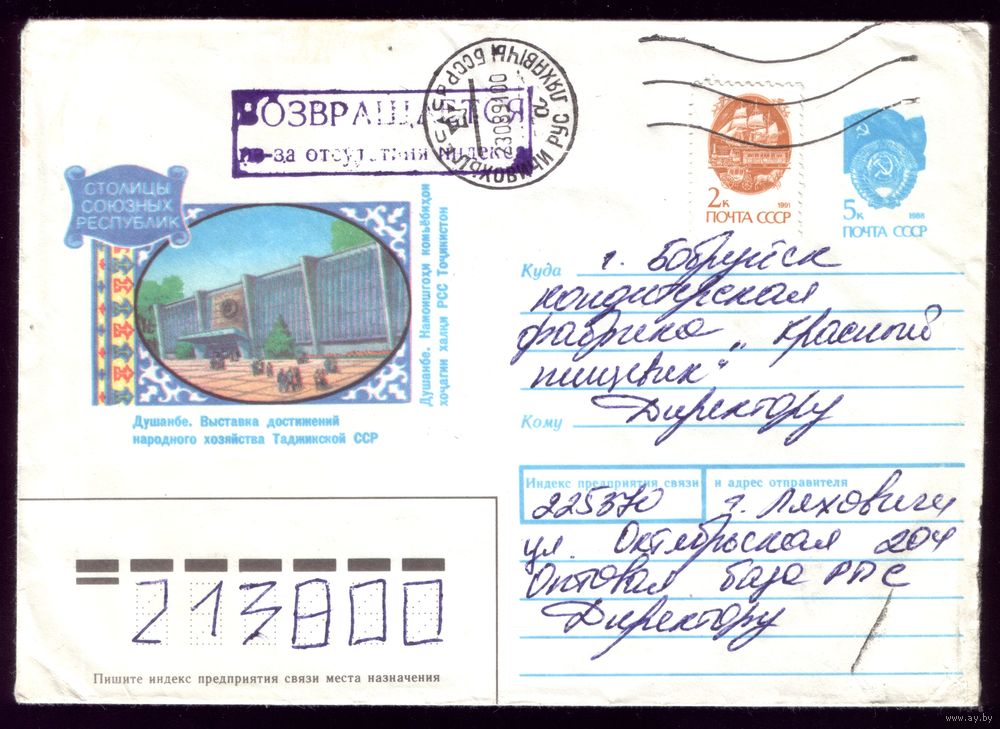 ВОЗВРАЩАЕТСЯ
из-за отсутствия индекса
ЛЯХАВIЧЫ БССР
23089100
ЛЯХОВИЧИ РУС
2к
1991
ПОЧТА СССР
5к
1988
ПОЧТА СССР
СТОЛИЦЫ
СОЮЗНЫХ
РЕСПУБЛИК
Душанбе. Намоишгоҳи комьёбиҳои
хоҷагии халқи РСС Тоҷикистон
Душанбе. Выставка достижений
народного хозяйства Таджикской ССР
Куда г. Бобруйск
кондитерская
фабрика „Красный
пищевик“
Кому Директору
Индекс предприятия связи и адрес отправителя
225370 г. Ляховичи
ул. Октябрьская 204
Оптовая база РПС
Директору
213800
Пишите индекс предприятия связи места назначения
www.ay.by